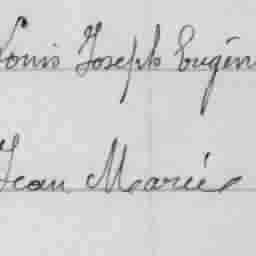 Louis Joseph Eugèn
Jean Marie